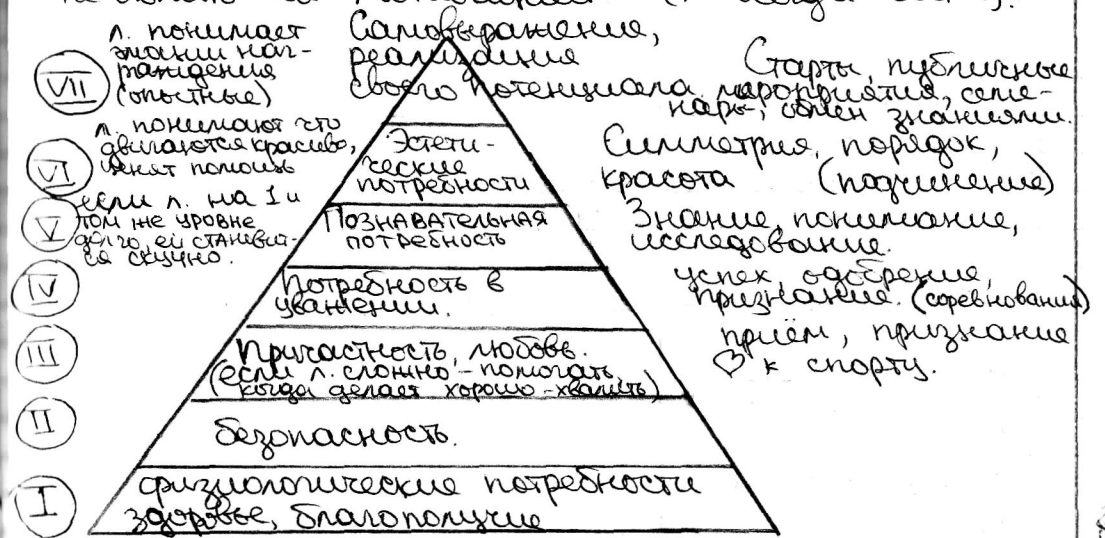 л. понимает
эмоции наг-
раждения
(опытные)
VII
Самовыражение,
реализация
своего потенциала
Старты, публичные
мероприятия, семи-
нары, обмен знаниями.
л. понимают что
двигаются красиво,
ценят помощь
VI
Эстети-
ческие
потребности
Симметрия, порядок,
красота (подчинение)
если л. на 1 и
том же уровне
долго, ей становит-
ся скучно.
V
Познавательная
потребность
Знание, понимание,
исследование.
IV
Потребность в
уважении.
успех, одобрение,
признание. (соревнования)
III
Причастность, любовь.
(если л. сложно - помогать,
когда делает хорошо - хвалить)
приём, признание
♡ к спорту.
II
безопасность.
I
физиологические потребности
здоровье, благополучие